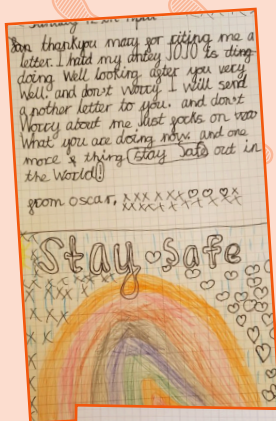 Sunday 12th April
thankyou mary for riting me a
letter. I hatd my antey JOJO is
doing Well looking after you very
Well. and don't worry I will send
another letter to you. and don't
Worry about me Just focks on
What you are doing now. and one
more thing stay Safe out in
the World!
from oscar. xxxxxxx
xxxxxxxxxx
Stay Safe